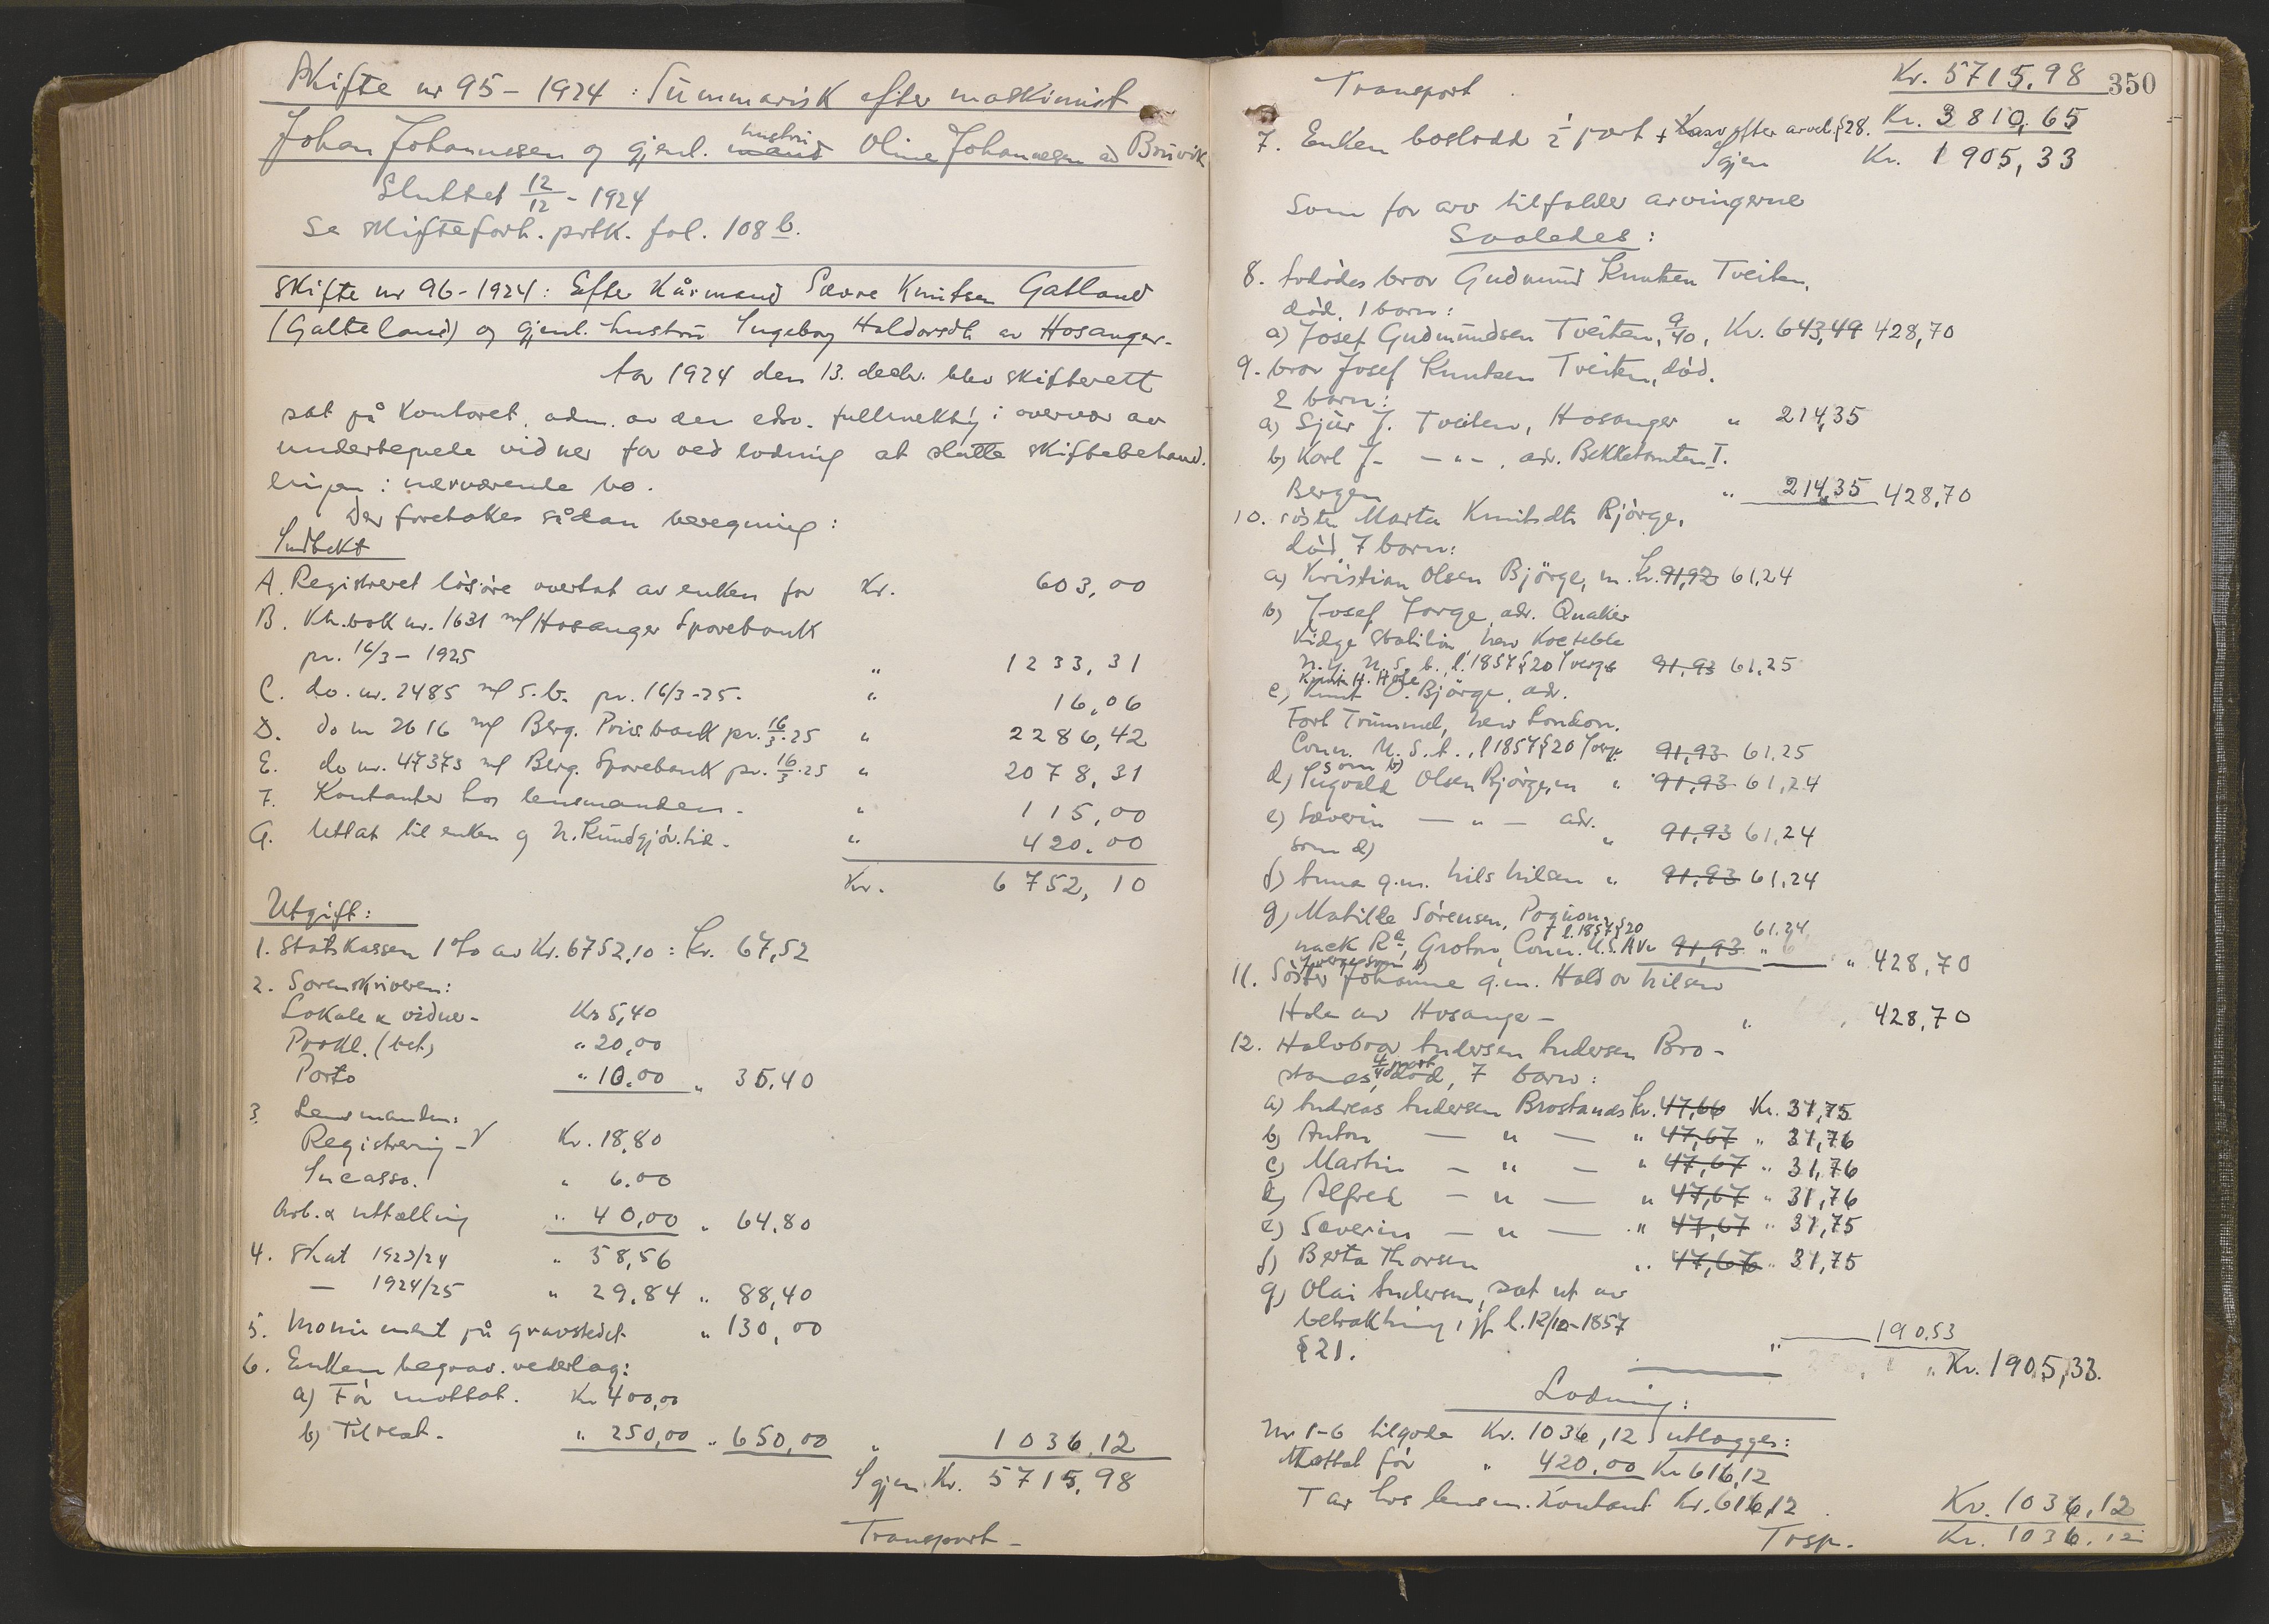 Skifte nr 95 - 1924 : Summarisk efter maskinist
Johan Johannessen og gjenl. mand hustru Oline Johannesen av Bruvik
Sluttet 12/12 - 1924
Se skifteforh. protk. fol. 108 b.
Skifte nr 96 - 1924 : Efter Kårmand Sævre Knutsen Gatland
(Galteland) og gjenl. hustru Ingeborg Haldorsdt. av Hosanger.
År 1924 den 13. decbr. blev skifterett
sat på kontoret, adm. av den edsv. fullmektig i overvær av
undertegnede vidner for ved lodning at slutte skiftebehand-
lingen i nærværende bo.
Der foretokes sådan beregning :
Indtekt
A. Registreret løsøre overtat av enken for Kr. 603,00
B. Ktr.bok nr. 1631 m/ Hosanger Sparebank
pr. 16/3 - 1925 " 1233,31
C. do. nr. 2485 m/ s.b. pr. 16/3-25. " 16,06
D. do nr 2616 m/ Berg. Privatbank pr. 16/3.25 " 2286,42
E. do nr. 47373 m/ Berg. Sparebank pr. 16/3.25 " 2078,31
F. Kontanter hos lensmanden - " 115,00
G. Utlat til enken og N. Kundgjør.tid. - " 420,00
Kr. 6752,10
Utgift :
1. Statskassen 1 % av Kr. 6752,10 : Kr. 67,52
2. Sorenskriveren :
Lokale & vidner - Kr 5,40
Prokl. (bet.) " 20,00
Porto " 10,00 " 35,40
3. Lensmanden :
Registrering - Kr. 18,80
Incasso. " 6.00
Arb. & uttælling " 40,00 " 64,80
4. Skat 1923/24 " 58,56
— 1924/25 " 29,84 " 88,40
5. Monument på gravstedet " 130,00
6. Enken begrav. vederlag :
a) Før mottat. Kr 400,00
b) Til rest. " 250,00 " 650,00 " 1036,12
Igjen Kr. 5715,98
Transport -
350
Transport Kr. 5715,98
7. Enken boslodd ½ part + arv efter arvel. § 28. Kr. 3810,65
Igjen Kr. 1905,33
Som for arv tilfalder arvingerne
Saaledes :
8. Avdødes bror Gudmund Knutsen Tveiten,
død, 1 barn :
a) Josef Gudmundsen Tveiten, 9/40, Kr. 643,49 428,70
9. bror Josef Knutsen Tveiten, død.
2 barn :
a) Sjur J. Tveiten, Hosanger " 214,35
b) Karl J - — " —, adr. Bekketomten I.
Bergen " 214,35 428,70
10. søster Marta Knutsdtr. Bjørge,
død, 7 barn :
a) Kristian Olsen Bjørge, m. Kr. 91,92 61,24
b) Josef Jorge, adr. Quaker
Ridge Station, New Rochelle
N.Y. U.S.A., l. 1857 § 20 Verge 91,93 61,25
Knut H. Hole
c) Knut O. Bjørge, adr.
Fort Trummel, New London.
Conn. U.S.A., l 1857 § 20 Verge 91,93 61,25
som b)
d) Ingvald Olsen Bjørge, m " 91,93 61,24
e) Severin — " — adr.
som d) " 91,93 61,24
f) Anna g.m. Nils Nilsen " 91,93 61,24
g) Matilde Sørensen, Poquon-
l. 1857 § 20 61,24
nack Rd, Groton, Conn. U.S.A. 91,93 " 428,70
Verge som b)
11. Søster Johanne g.m. Haldor Nilsen
Hole av Hosanger - " 428,70
12. Halvbror Andersen Andersen Bro-
stanes, 4/40 part død, 7 barn :
a) Andreas Andersen Brostanes Kr. 47,66 Kr. 31,75
b) Anton — " — " 47,67 " 31,76
c) Martin — " — " 47,67 " 31,76
d) Alfred — " — " 47,67 " 31,76
e) Severin — " — " 47,67 " 31,75
f) Berta Thorsen " 47,66 " 31,75
g) Olai Andersen, sat ut av
betraktning, jf. l. 12/10-1857
§ 21. " 190,53
" Kr. 1905,33.
Lodning :
Nr 1-6 tilgode Kr. 1036,12 utlægges :
Mottat før " 420.00 Kr 616,12
Tar hos lensm. Kontant Kr. 616,12 Kr. 1036,12
Trsp. Kr. 1036,12